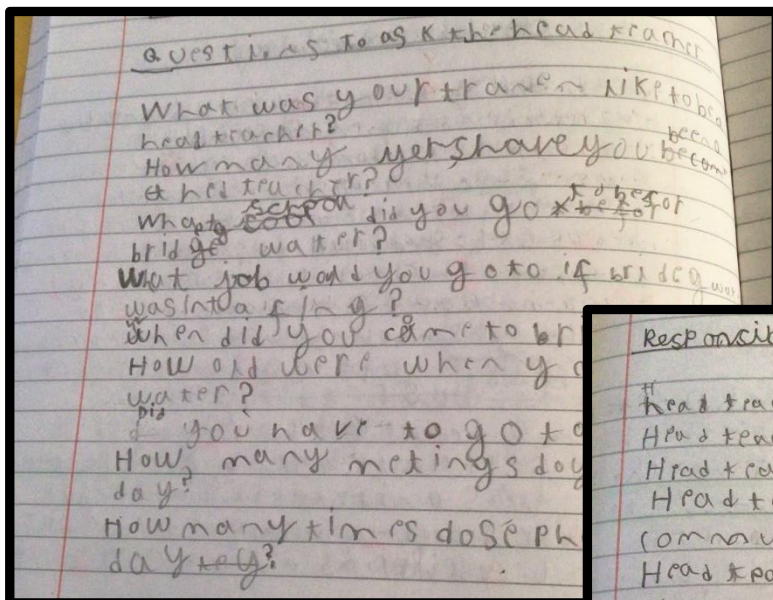 Questions to ask the head teacher
What was your like to be a
head teacher?
How many yers have you been a
becom
a hed teacher?
What school did you go to befor
bridge water?
What job would you go to if bridg wa
was int a
When did you come to br
How old were when y
water?
Did you have to go to
How many metings do y
day?
How many times dose ph
day?
Responsib
Head tea
Head tea
Head tea
Head t
commu
Head tea